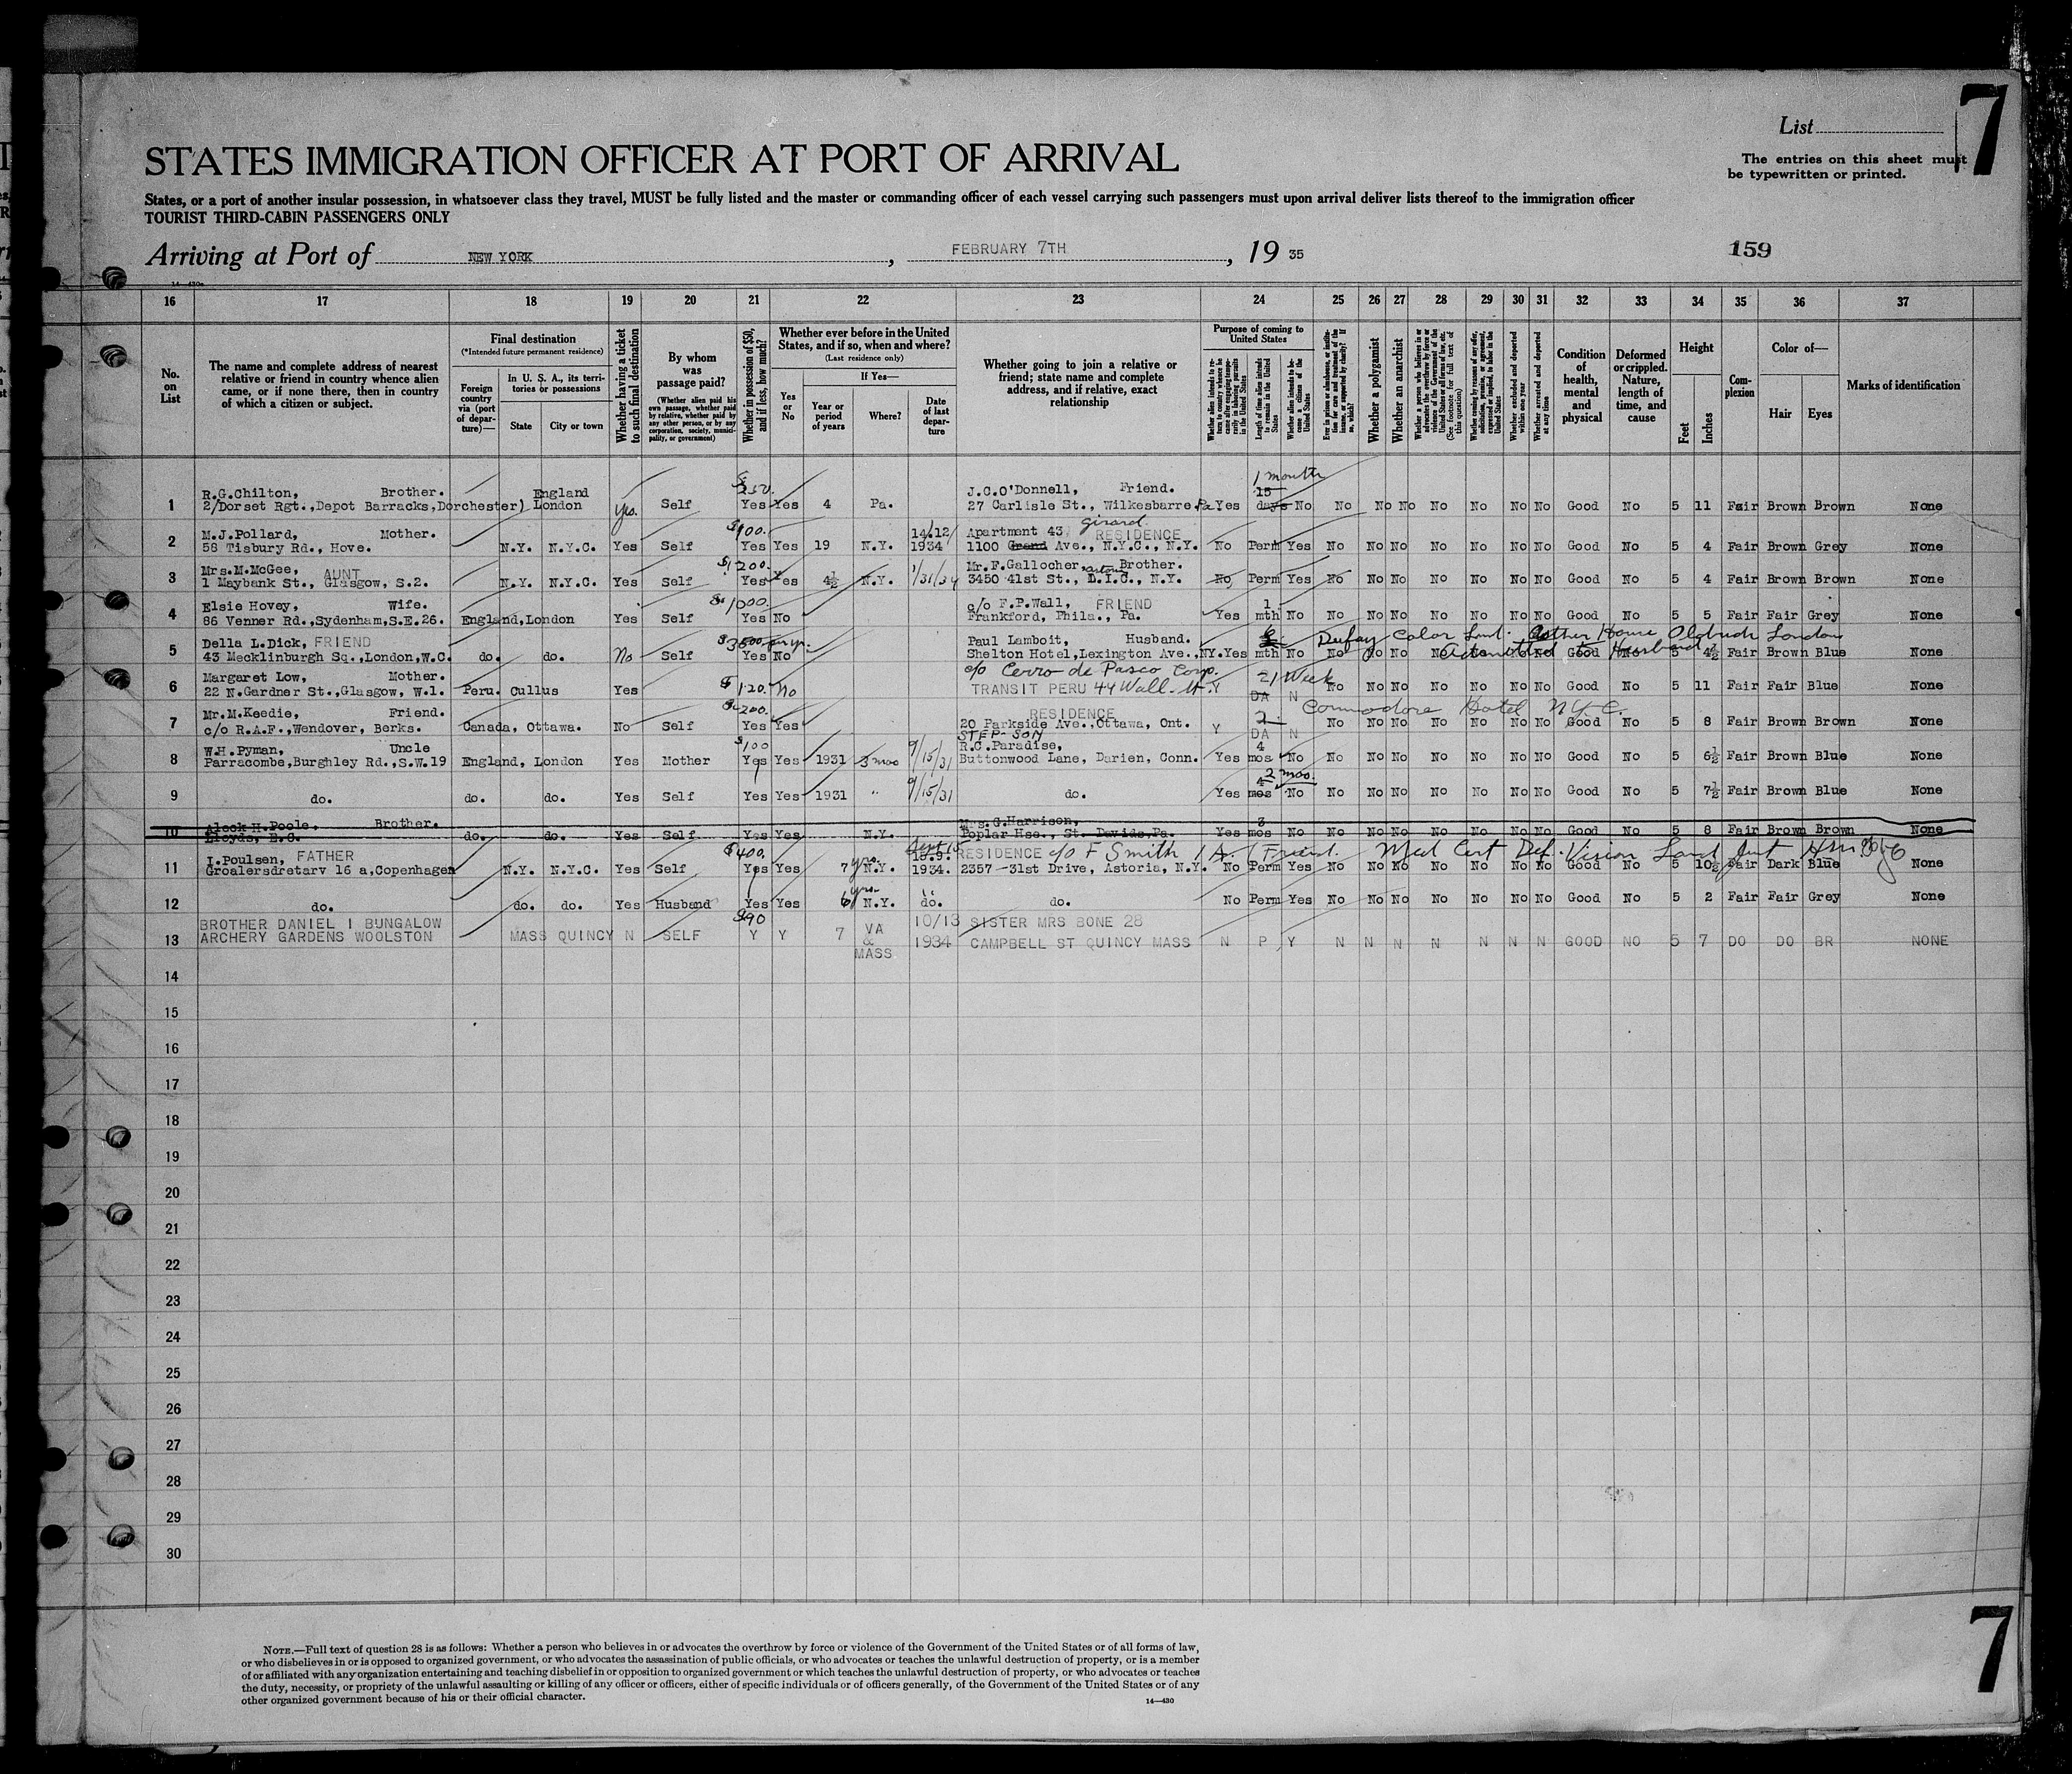 List 7
STATES IMMIGRATION OFFICER AT PORT OF ARRIVAL
The entries on this sheet must
be typewritten or printed.
States, or a port of another insular possession, in whatsoever class they travel, MUST be fully listed and the master or commanding officer of each vessel carrying such passengers must upon arrival deliver lists thereof to the immigration officer
TOURIST THIRD-CABIN PASSENGERS ONLY
Arriving at Port of NEW YORK, FEBRUARY 7TH, 19 35 159
16 17 18 19 20 21 22 23 24 25 26 27 28 29 30 31 32 33 34 35 36 37
No. on List
The name and complete address of nearest relative or friend in country whence alien came, or if none there, then in country of which a citizen or subject.
Final destination
(*Intended future permanent residence)
Foreign country via (port of departure)—
In U. S. A., its territories or possessions
State
City or town
Whether having a ticket to such final destination
By whom was passage paid?
(Whether alien paid his own passage, whether paid by relative, whether paid by any other person, or by any corporation, society, municipality, or government)
Whether in possession of $50, and if less, how much?
Whether ever before in the United States, and if so, when and where?
(Last residence only)
Yes or No
If Yes—
Year or period of years
Where?
Date of last departure
Whether going to join a relative or friend; state name and complete address, and if relative, exact relationship
Purpose of coming to United States
Whether alien intends to return to country whence he came after engaging temporarily in laboring pursuits in the United States
Length of time alien intends to remain in the United States
Whether alien intends to become a citizen of the United States
Ever in prison or almshouse, or institution for care and treatment of the insane, or supported by charity? If so, which?
Whether a polygamist
Whether an anarchist
Whether a person who believes in or advocates the overthrow by force or violence of the Government of the United States or all forms of law, etc. (See footnote for full text of this question)
Whether coming by reasons of any offer, solicitation, promise, or agreement, expressed or implied, to labor in the United States
Whether excluded and deported within one year
Whether arrested and deported at any time
Condition of health, mental and physical
Deformed or crippled. Nature, length of time, and cause
Height
Feet
Inches
Complexion
Color of—
Hair
Eyes
Marks of identification
$250. 1 month
R.G.Chilton, Brother. England J.C.O'Donnell, Friend. 15
1 2/Dorset Rgt.,Depot Barracks,Dorchester) London yes. Self Yes Yes 4 Pa. 27 Carlisle St., Wilkesbarre Pa Yes days No No No No No No No No Good No 5 11 Fair Brown Brown None
M.J.Pollard, Mother. $100. 14/12/ Apartment 43, Girard RESIDENCE
2 56 Tisbury Rd., Hove. N.Y. N.Y.C. Yes Self Yes Yes 19 N.Y. 1934 1100 Grand Ave., N.Y.C., N.Y. No Perm Yes No No No No No No No Good No 5 4 Fair Brown Grey None
Mrs.M.McGee, AUNT $1200. Mr.F.Gallocher, Brother.
3 1 Maybank St., Glasgow, S.2. N.Y. N.Y.C. Yes Self Yes Yes 4½ N.Y. 1/31/34 3450 41st St., L.I.C., N.Y. No Perm Yes No No No No No No No Good No 5 4 Fair Brown Brown None
Elsie Hovey, Wife. $1000. c/o F.P.Wall, FRIEND 1
4 66 Venner Rd.,Sydenham,S.E.26. England,London Yes Self Yes No Frankford, Phila., Pa. Yes mth No No No No No No No No Good No 5 5 Fair Fair Grey None
Della L.Dick, FRIEND $3500 per yr. Paul Lamboit, Husband. 6 Dufay Color Ltd. House Aldwich London
5 43 Mecklinburgh Sq.,London,W.C. do. do. No Self Yes No Shelton Hotel,Lexington Ave.,NY. Yes mth No No No No No No No No Good No 5 4½ Fair Brown Blue None
Admitted to Husband
Margaret Low, Mother. c/o Cerro de Pasco Corp. 1 Week
6 22 N.Gardner St.,Glasgow, W.1. Peru. Cullus Yes $120. No TRANSIT PERU 44 Wall St. Y DA N No No No No No No No Good No 5 11 Fair Fair Blue None
Mr.M.Keedie, Friend. $200. RESIDENCE 2 Commodore Hotel N.Y.C.
7 c/o R.A.F.,Wendover, Berks. Canada, Ottawa. No Self Yes Yes 20 Parkside Ave.,Ottawa, Ont. Y DA N No No No No No No No Good No 5 8 Fair Brown Brown None
STEP-SON
W.H.Pyman, Uncle $100 R.C.Paradise, 4
8 Parracombe,Burghley Rd.,S.W.19 England, London Yes Mother Yes Yes 1931 3 mos 9/15/31 Buttonwood Lane, Darien, Conn. Yes mos No No No No No No No No Good No 5 6½ Fair Brown Blue None
4 2 mos.
9 do. do. do. Yes Self Yes Yes 1931 " 9/15/31 do. Yes mos No No No No No No No No Good No 5 7½ Fair Brown Blue None
Alock H.Poole, Brother. Mrs.G.Harrison, 3
10 Lloyds, E.C. do. do. Yes Self Yes Yes N.Y. Poplar Hse., St. Davids,Pa. Yes mos No No No No No No No No Good No 5 8 Fair Brown Brown None
I.Poulsen, FATHER $400. yrs. Sept 15 15.9. RESIDENCE c/o F Smith Friend. Med Cert Def. Vision
11 Groalersdretarv 16 a,Copenhagen N.Y. N.Y.C. Yes Self Yes Yes 7 N.Y. 1934. 2357-31st Drive, Astoria, N.Y. No Perm Yes No No No No No No No Good No 5 10½ Fair Dark Blue None
yrs.
12 do. do. do. Yes Husband Yes Yes 6 N.Y. do. do. No Perm Yes No No No No No No No Good No 5 2 Fair Fair Grey None
BROTHER DANIEL 1 BUNGALOW $90 VA 10/13 SISTER MRS BONE 28
13 ARCHERY GARDENS WOOLSTON MASS QUINCY N SELF Y Y 7 & 1934 CAMPBELL ST QUINCY MASS N P Y N N N N N N N GOOD NO 5 7 DO DO BR NONE
MASS
14
15
16
17
18
19
20
21
22
23
24
25
26
27
28
29
30
NOTE.—Full text of question 28 is as follows: Whether a person who believes in or advocates the overthrow by force or violence of the Government of the United States or of all forms of law,
or who disbelieves in or is opposed to organized government, or who advocates the assassination of public officials, or who advocates or teaches the unlawful destruction of property, or is a member
of or affiliated with any organization entertaining and teaching disbelief in or opposition to organized government or which teaches the unlawful destruction of property, or who advocates or teaches
the duty, necessity, or propriety of the unlawful assaulting or killing of any officer or officers, either of specific individuals or of officers generally, of the Government of the United States or of any
other organized government because of his or their official character.
14—430
7